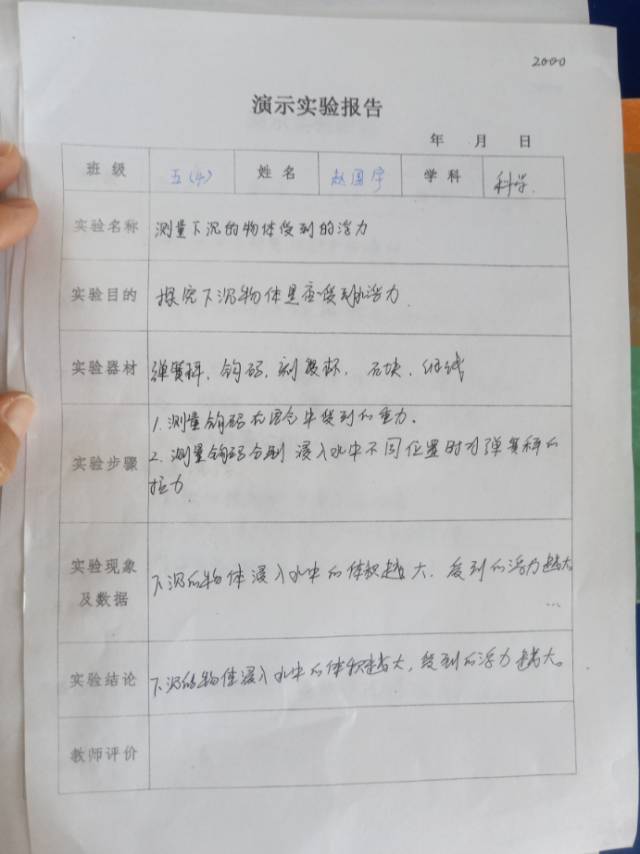 2000
演示实验报告
年 月 日
班级 五(4) 姓名 赵国宇 学科 科学.
实验名称 测量下沉的物体受到的浮力
实验目的 探究下沉物体是否受到水浮力.
实验器材 弹簧秤、钩码、刻度杯、石块、细线
1. 测量钩码在空气中受到的重力.
实验步骤 2. 测量钩码分别浸入水中不同位置时对弹簧秤的
拉力.
实验现象及数据 下沉的物体浸入水中的体积越大. 受到的浮力越大
...
实验结论 下沉的物体浸入水中的体积越大, 受到的浮力越大。
教师评价